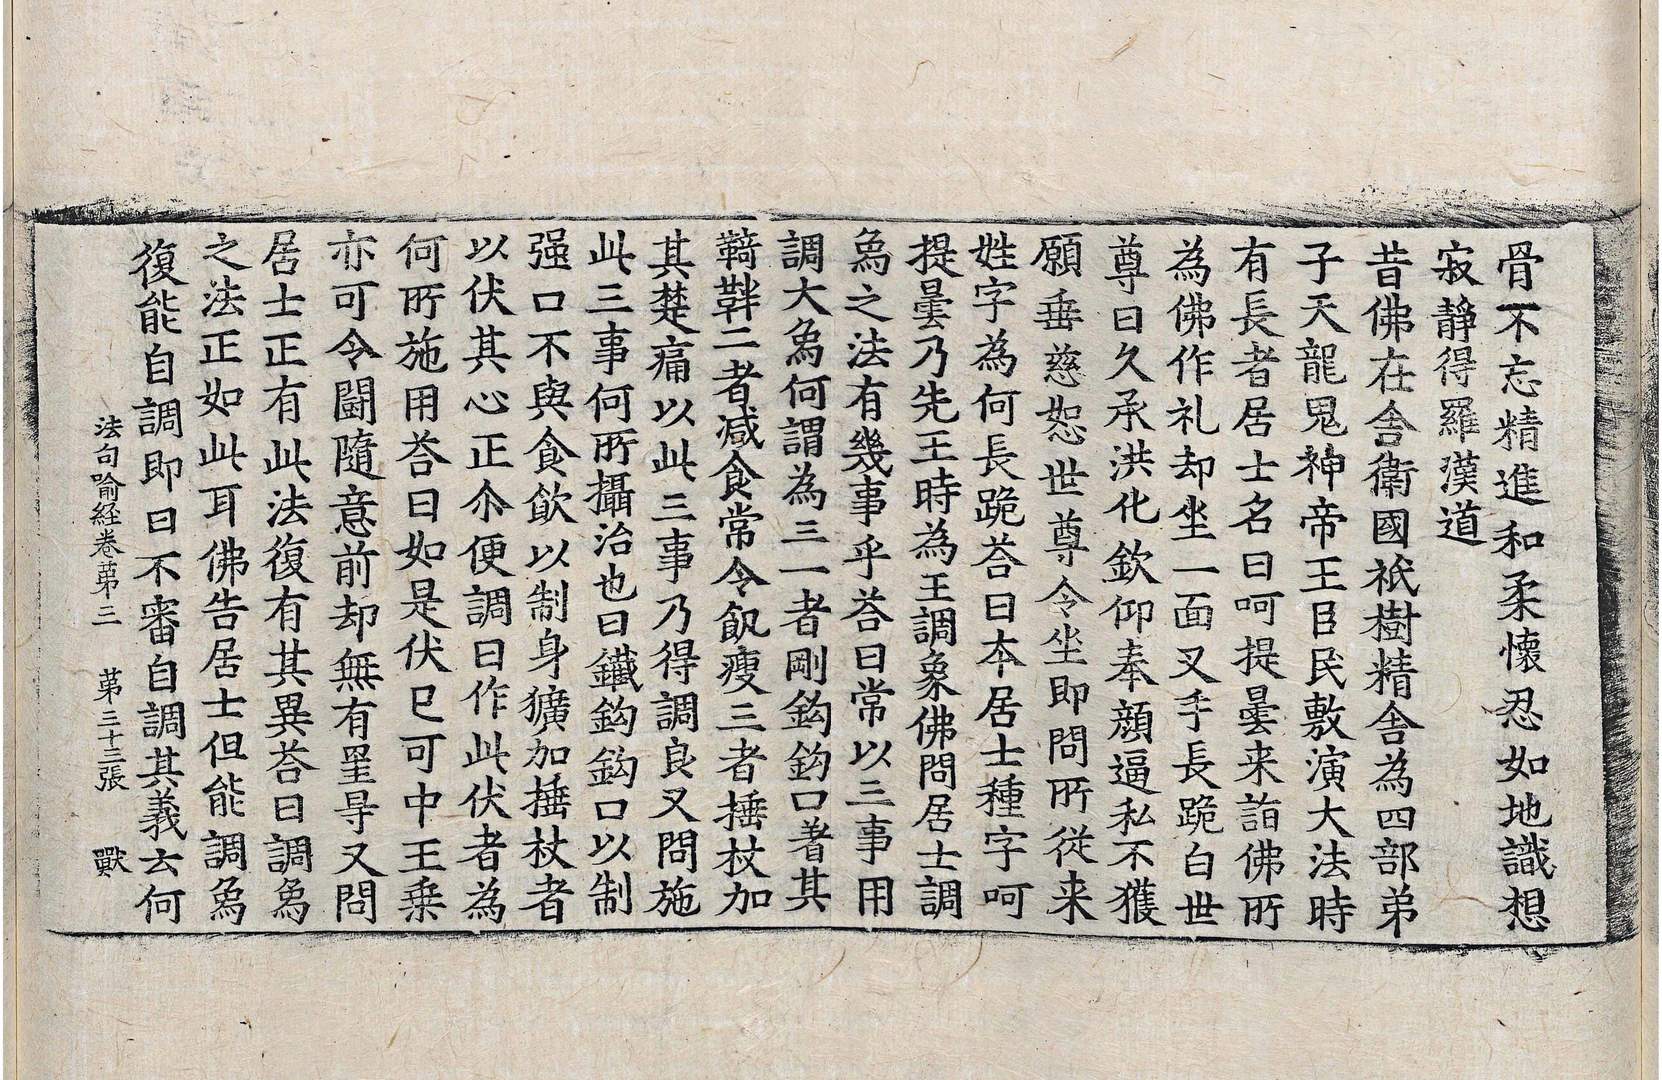 骨不忘精進和柔懷忍如地識想
寂靜得羅漢道
昔佛在舍衛國祇樹精舍為四部弟
子天龍鬼神帝王臣民敷演大法時
有長者居士名曰呵提曇来詣佛所
為佛作礼却坐一面叉手長跪白世
尊曰久承洪化欽仰奉顔逼私不獲
願垂慈恕世尊令坐即問所従来
姓字為何長跪荅曰本居士種字呵
提曇乃先王時為王調象佛問居士調
為之法有幾事乎荅曰常以三事用
調大為何謂為三一者剛鈎鈎口著其
鞿靽二者減食常令飢瘦三者捶杖加
其楚痛以此三事乃得調良又問施
此三事何所攝治也曰鐵鈎鈎口以制
强口不與食飲以制身獷加捶杖者
以伏其心正尒便調曰作此伏者為
何所施用荅曰如是伏已可中王乗
亦可令鬪隨意前却無有罣㝵又問
居士正有此法復有其異荅曰調為
之法正如此耳佛告居士但能調為
復能自調即曰不審自調其義云何
法句喻経卷苐三 苐三十三張 獸